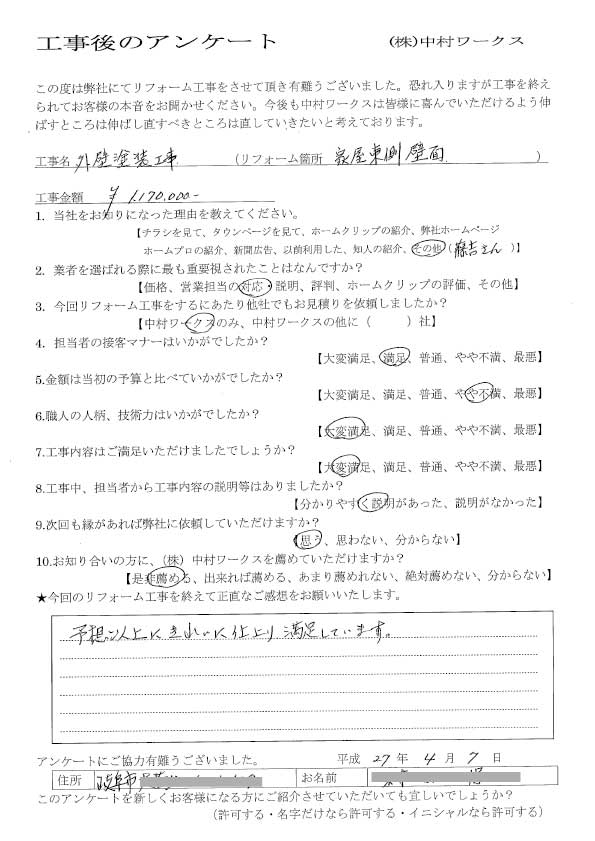 工事後のアンケート (株)中村ワークス
この度は弊社にてリフォーム工事をさせて頂き有難うございました。恐れ入りますが工事を終え
られてお客様の本音をお聞かせください。今後も中村ワークスは皆様に喜んでいただけるよう伸
ばすところは伸ばし直すべきところは直していきたいと考えております。
工事名 外壁塗装工事 (リフォーム箇所 家屋東側壁面 )
工事金額 ¥1,170,000-
1. 当社をお知りになった理由を教えてください。
【チラシを見て、タウンページを見て、ホームクリップの紹介、弊社ホームページ
ホームプロの紹介、新聞広告、以前利用した、知人の紹介、その他(藤吉さん )】
2. 業者を選ばれる際に最も重要視されたことはなんですか?
【価格、営業担当の対応・説明、評判、ホームクリップの評価、その他】
3. 今回リフォーム工事をするにあたり他社でもお見積りを依頼しましたか?
【中村ワークスのみ、中村ワークスの他に( )社】
4. 担当者の接客マナーはいかがでしたか?
【大変満足、満足、普通、やや不満、最悪】
5.金額は当初の予算と比べていかがでしたか?
【大変満足、満足、普通、やや不満、最悪】
6.職人の人柄、技術力はいかがでしたか?
【大変満足、満足、普通、やや不満、最悪】
7.工事内容はご満足いただけましたでしょうか?
【大変満足、満足、普通、やや不満、最悪】
8.工事中、担当者から工事内容の説明等はありましたか?
【分かりやすく説明があった、説明がなかった】
9.次回も縁があれば弊社に依頼していただけますか?
【思う、思わない、分からない】
10.お知り合いの方に、(株)中村ワークスを薦めていただけますか?
【是非薦める、出来れば薦める、あまり薦めれない、絶対薦めない、分からない】
★今回のリフォーム工事を終えて正直なご感想をお願いいたします。
予想以上にきれいに仕上り満足しています。
アンケートにご協力有難うございました。 平成 27 年 4 月 7 日
住所 岐阜市 お名前
このアンケートを新しくお客様になる方にご紹介させていただいても宜しいでしょうか?
(許可する・名字だけなら許可する・イニシャルなら許可する)